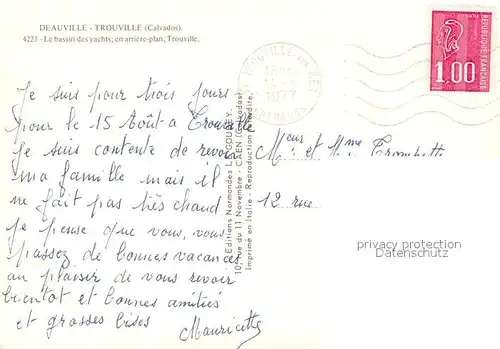 DEAUVILLE - TROUVILLE (Calvados).
4223 - Le bassin des yachts; en arrière-plan, Trouville.
Je suis pour trois jours
pour le 15 Août a Trouville
je suis contente de revoir
ma famille mais il
ne fait pas très chaud
je pense que vous, vous
passez de bonnes vacances
au plaisir de vous revoir
bientot et bonnes amitiés
et grosses bises
Mauricette
Editions Normandes LE GOUBEY
10, rue du 11 Novembre - CAEN (Calvados)
Imprimé en Italie - Reproduction interdite.
1977
CALVADOS
REPUBLIQUE FRANÇAISE
1.00
Meur et Mme
12 rue
privacy protection
Datenschutz